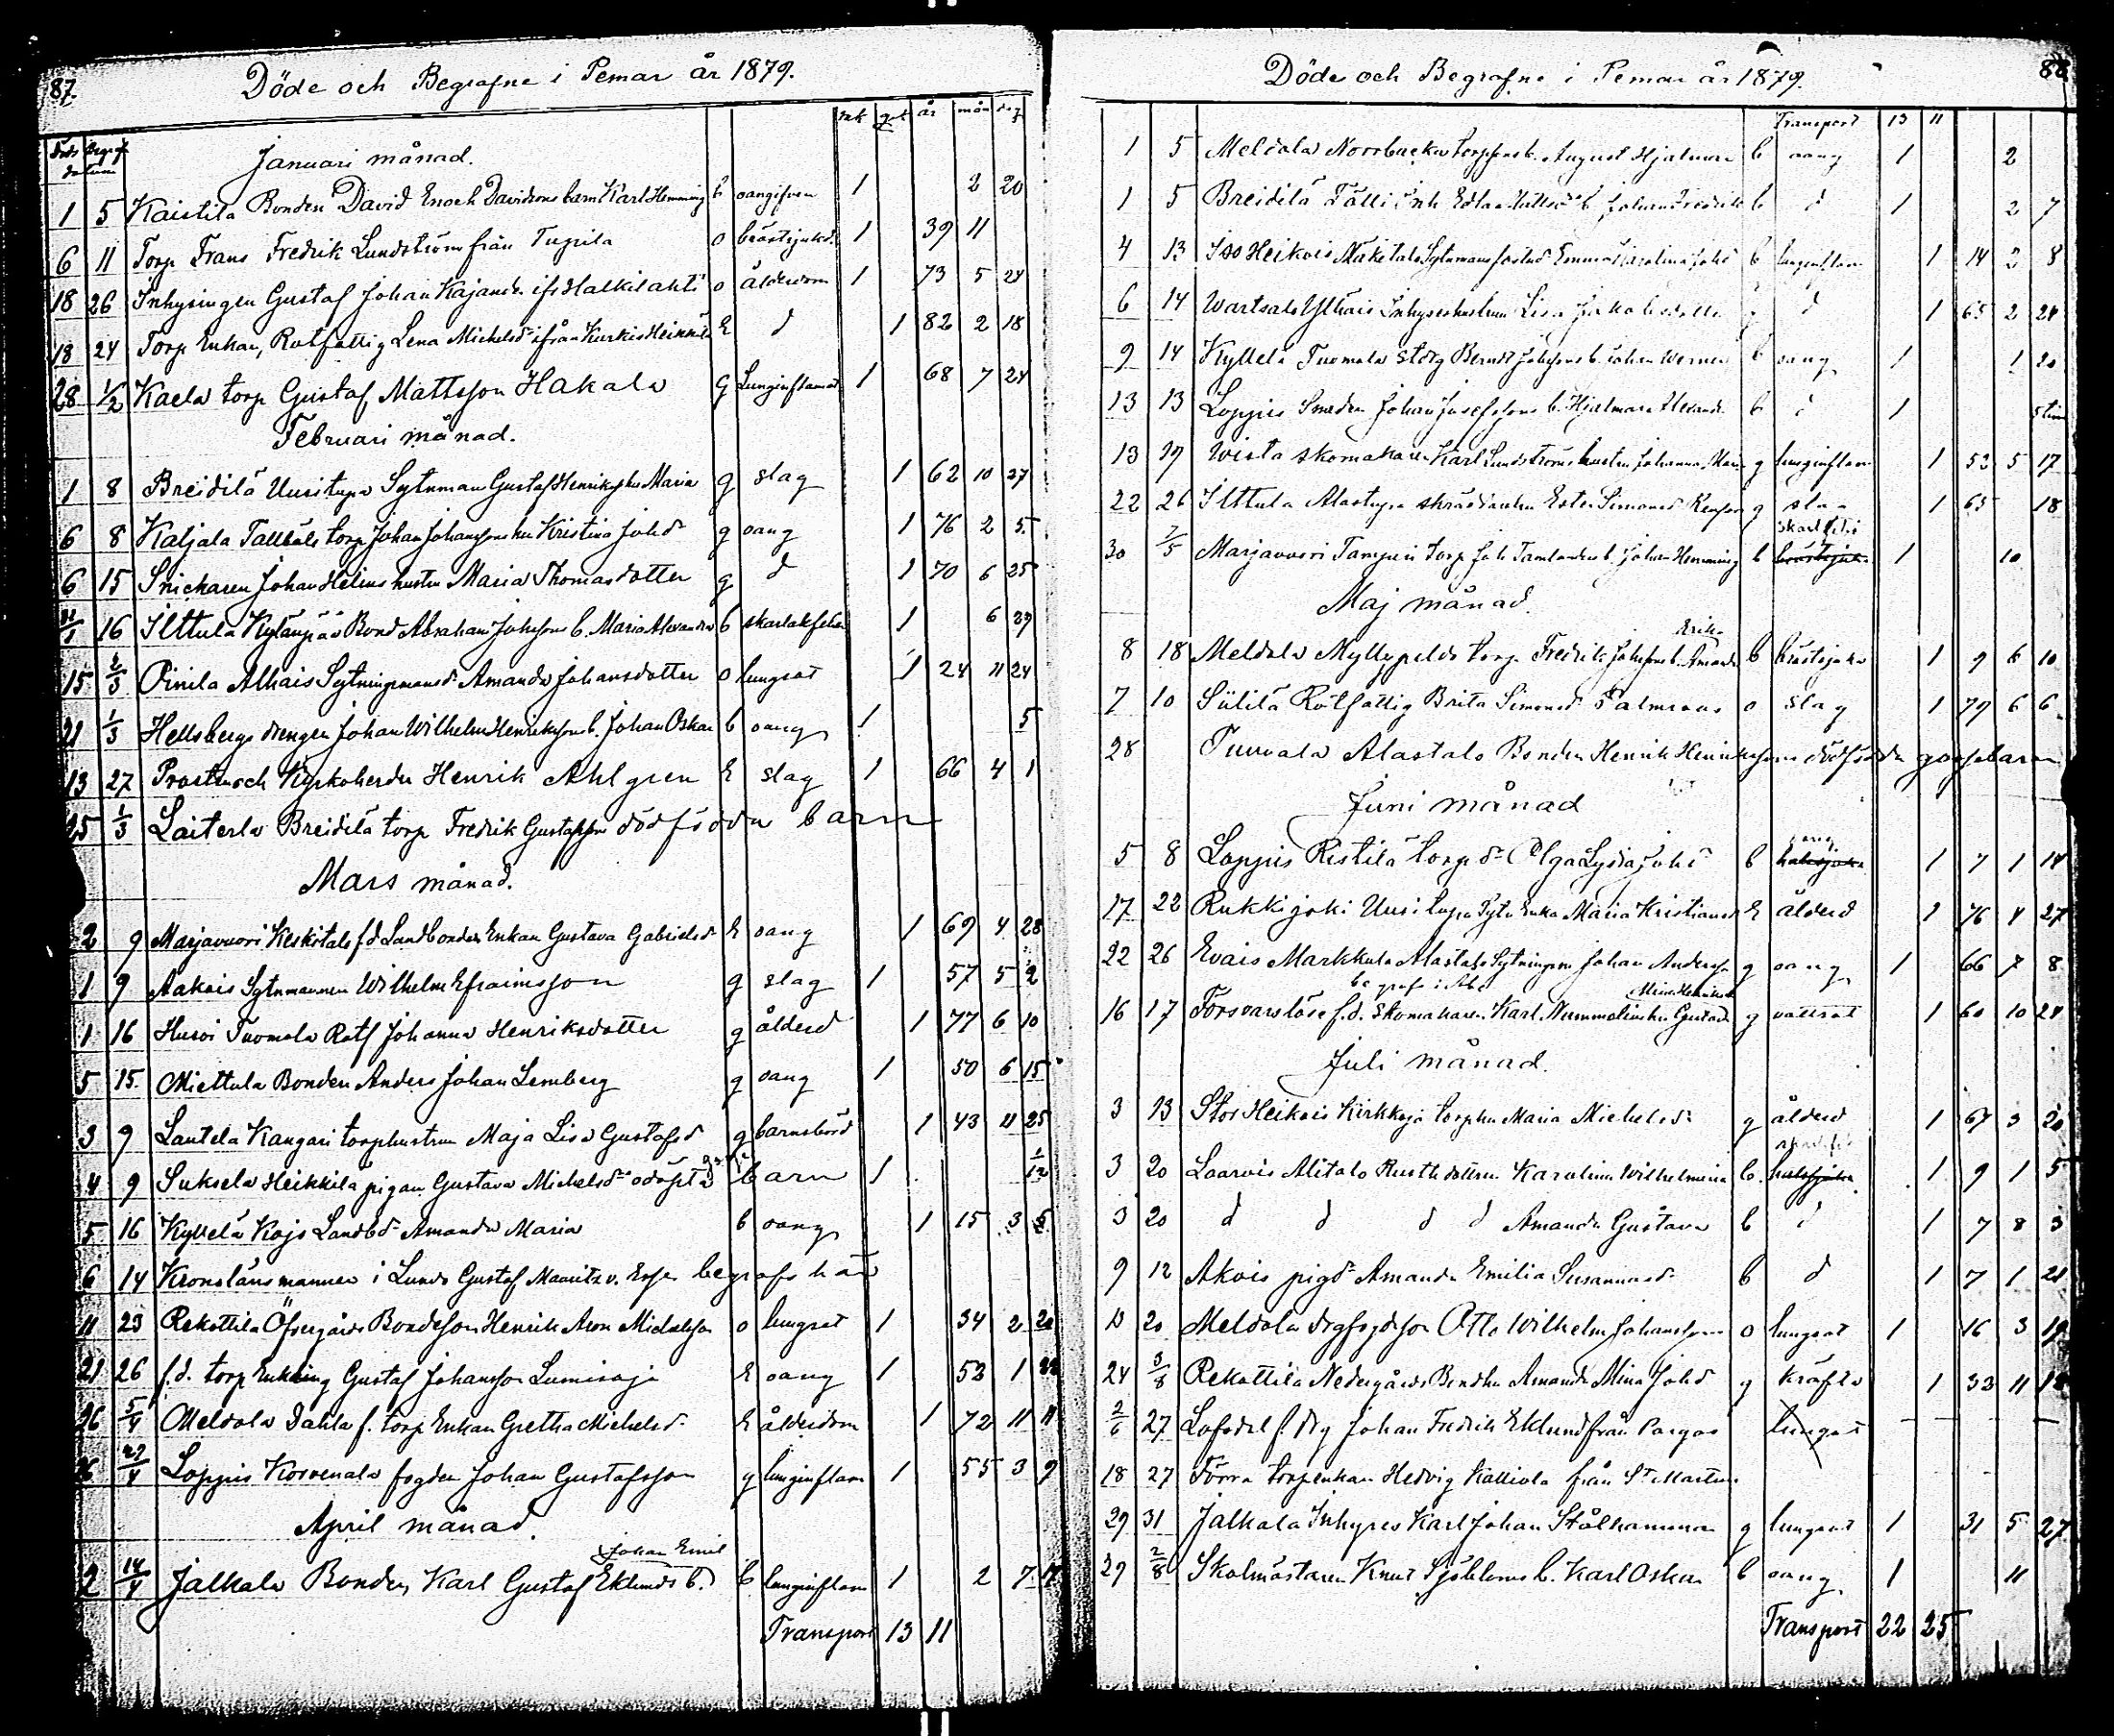 87.
Döde och Begrafne i Pemar år 1879.
Döds Begrafn datum mk qvk år mån dag
Januari månad.
1 5 Kaistila Bonden David Enoch Davidsons barn Karl Hemming b oangifven 1 2 20
6 11 Torp Frans Fredrik Lundström från Tupila o bröstsjukd. 1 39 11
18 26 Inhysingen Gustaf Johan Kajander ifr Halkilahti o ålderdom 1 73 5 24
18 24 Torp Enkan, Rotfattig Lena Michelsd ifrån Kurkis Heikkilä E d 1 82 2 18
28 1/2 Kaela torp Gustaf Mattsson Hakala g Lunginflamat 1 68 7 24
Februari månad.
1 8 Breidilä Uusitupa Sytnman Gustaf Henriks hu Maria g slag 1 62 10 27
6 8 Kaljala Tallbäls torp Johan Johanssons hu Kristina Johd g oang 1 76 2 5
6 15 Snickaren Johan Helins hustru Maria Thomasdotter g d 1 70 6 25
16 Ilttula Kylänpää Bond Abraham Johnsons b. Maria Alexandra b skarlakfeber 1 6 29
15 2/3 Piuila Alhais Sytningsmansd Amanda Johansdotter o lungsot 1 24 11 24
21 1/3 Hellsbergs drengen Johan Wilhelm Henrikssons b. Johan Oskar b oang 1 5
13 27 Prosten och Kyrkoherden Henrik Ahlgren E slag 1 66 4 1
25 1/3 Laiterla Breidilä torp Fredrik Gustafsson dödfödda barn
Mars månad.
2 9 Marjavuori Keskitalo f d Landbonden Enkan Gustava Gabrielsd E oang 1 69 4 28
1 9 Aakois Sytnmannen Wilhelm Efraimsson g slag 1 57 5 2
1 16 Husoi Tuomola Rotf Johanna Henriksdotter g ålderd 1 77 6 10
5 15 Miettula Bonden Anders Johan Lemberg g oang 1 50 6 15
3 9 Lautela Kangari torphustrun Maja Lisa Gustafsd g barnsbörd 1 43 11 25
4 9 Suksela Heikkilä pigan Gustava Michelsd odöpta barn 1 1/12
5 16 Kyvelä Kojo Landbd Amanda Maria b oang 1 15 3 5
6 14 Kronolänsmannen i Lundo Gustaf Mauritz v. Essen begrofs här
11 23 Rekottila Öfvergårds Bondeson Henrik Aron Michelsson o lungsot 1 34 2 20
21 26 f.d. torp Enkling Gustaf Johansson Lumiraja E oang 1 53 1
26 5/4 Meldola Dahla f. torp Enkan Gretha Michelsd E ålderdom 1 72 11 11
27/4 Loppis Korvenala fogden Johan Gustafsson g lunginflam 1 55 3 9
April månad.
Johan Emil
2 14/4 Jalkala Bonden Karl Gustaf Eklunds b. b lunginflam 1 2 7 17
Transport 13 11
88
Döde och Begrafne i Pemar år 1879.
Transport 13 11
1 5 Meldola Norrbacka torpsons b. August Hjalmar b oang 1 2
1 5 Breidilä Tälli inh Edla Mattsd b. Johan Fredrik b d 1 2 7
4 13 Iso Heikois Mäkitalo Sytnmans fostd Emma Karolina Johd b lunginflam 1 14 2 8
6 14 Wartsalo Ylhäis Inhyseshustrun Lisa Jakobsdotter g d 1 65 2 24
9 14 Kyllelä Tuomola Storg Bernds Johssons b. Johan Werner b oang 1 1 20
13 13 Loppis Smeden Johan Josefssons b. Hjalmar Alexand b d 1 5 tim
13 19 Wista Skomakaren Karl Lundströms hustru Johanna Maria g lunginflam 1 53 5 17
22 26 Ilttula Alastupa skräddaren Ester Simonsd g slag 1 65 18
30 7/5 Marjavuori Tamperi torp Joh Tamlanders b. Johan Hemming b 1 10
Maj månad.
Erika
8 18 Meldola Myllypeldo torp Fredrik Johssons b. Amanda b bröstsjuka 1 9 6 10
7 10 Siililä Rotfattig Brita Simonsd Palmroos o slag 1 79 6 6
28 Tuuvala Alastalo Bonden Henrik Henrikssons dödfödda gossebarn
Juni månad
oang
5 8 Loppis Ristilä torp d Olga Lydia Johd b halssjuka 1 7 1 14
17 22 Rukkijoki Uusitupa Sytn Enka Maria Kristiansd E ålderd 1 76 4 27
22 26 Evais Markkula Alastalo Sytningsm Johan Andersson g oang 1 66 7 8
begrafs i Åbo
16 17 Försvarslöse f.d. Skomakaren Karl Nummelins hu Gustava g vattsot 1 60 10 24
Juli månad.
3 13 Stor Heikois Kirkkoja torphu Maria Michelsd g ålderd 1 67 3 20
3 20 Laarois Alitalo Rusth dottren Karolina Wilhelmina b. halssjuka 1 9 1 5
3 20 d d d d Amanda Gustava b d 1 7 8 3
9 12 Akois pigd Amanda Emilia Susannasd b d 1 7 1 21
13 20 Meldola Otto Wilhelm Johansson o lungsot 1 16 3 19
24 3/8 Rekottila Nedergårds Bondhu Amanda Mina Johd g kräfta 1 33 11 18
2/6 27 Lofsdal f. drg Johan Fredrik Eklund från Pargas lungsot
18 27 Förra torpenkan Hedvig Kalliola från St Martens
29 31 Jalkala Inhyses Karl Johan Stålhammar g lungsot 1 31 5 27
29 2/8 Skolmästaren Knut Sjöbloms b. Karl Oskar b oang 1 11
Transport 22 25